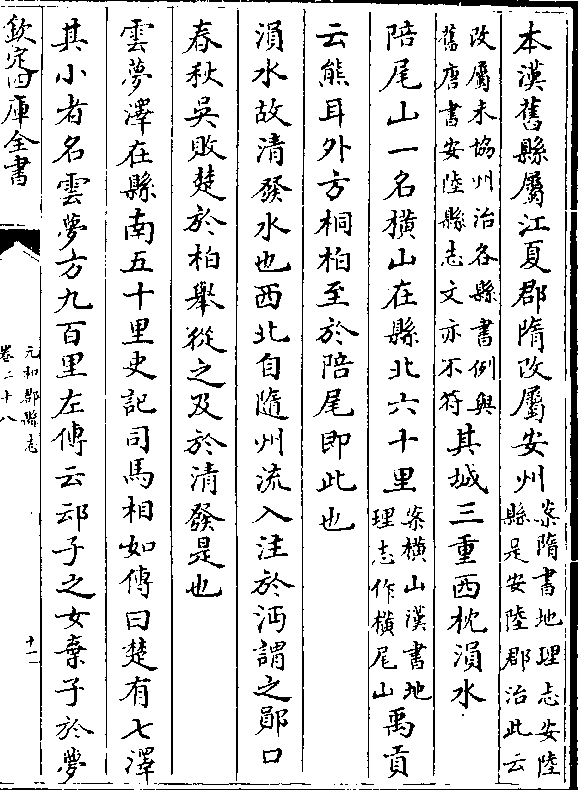 本漢舊縣屬江夏郡隋改屬安州案隋書地理志安陸
縣是安陸郡治此云
改屬未協州治各縣書例與
舊唐書安陸縣志文亦不符其城三重西枕溳水
陪尾山一名橫山在縣北六十里案橫山漢書地
理志作橫尾山禹貢
云熊耳外方桐柏至於陪尾即此也
溳水故清發水也西北自隨州流入注於沔謂之鄖口
春秋吳敗楚於柏舉從之及於清發是也
雲夢澤在縣南五十里史記司馬相如傳曰楚有七澤
其小者名雲夢方九百里左傳云䢵子之女棄子於夢
欽定四庫全書
元和郡縣志
卷二十八
十一